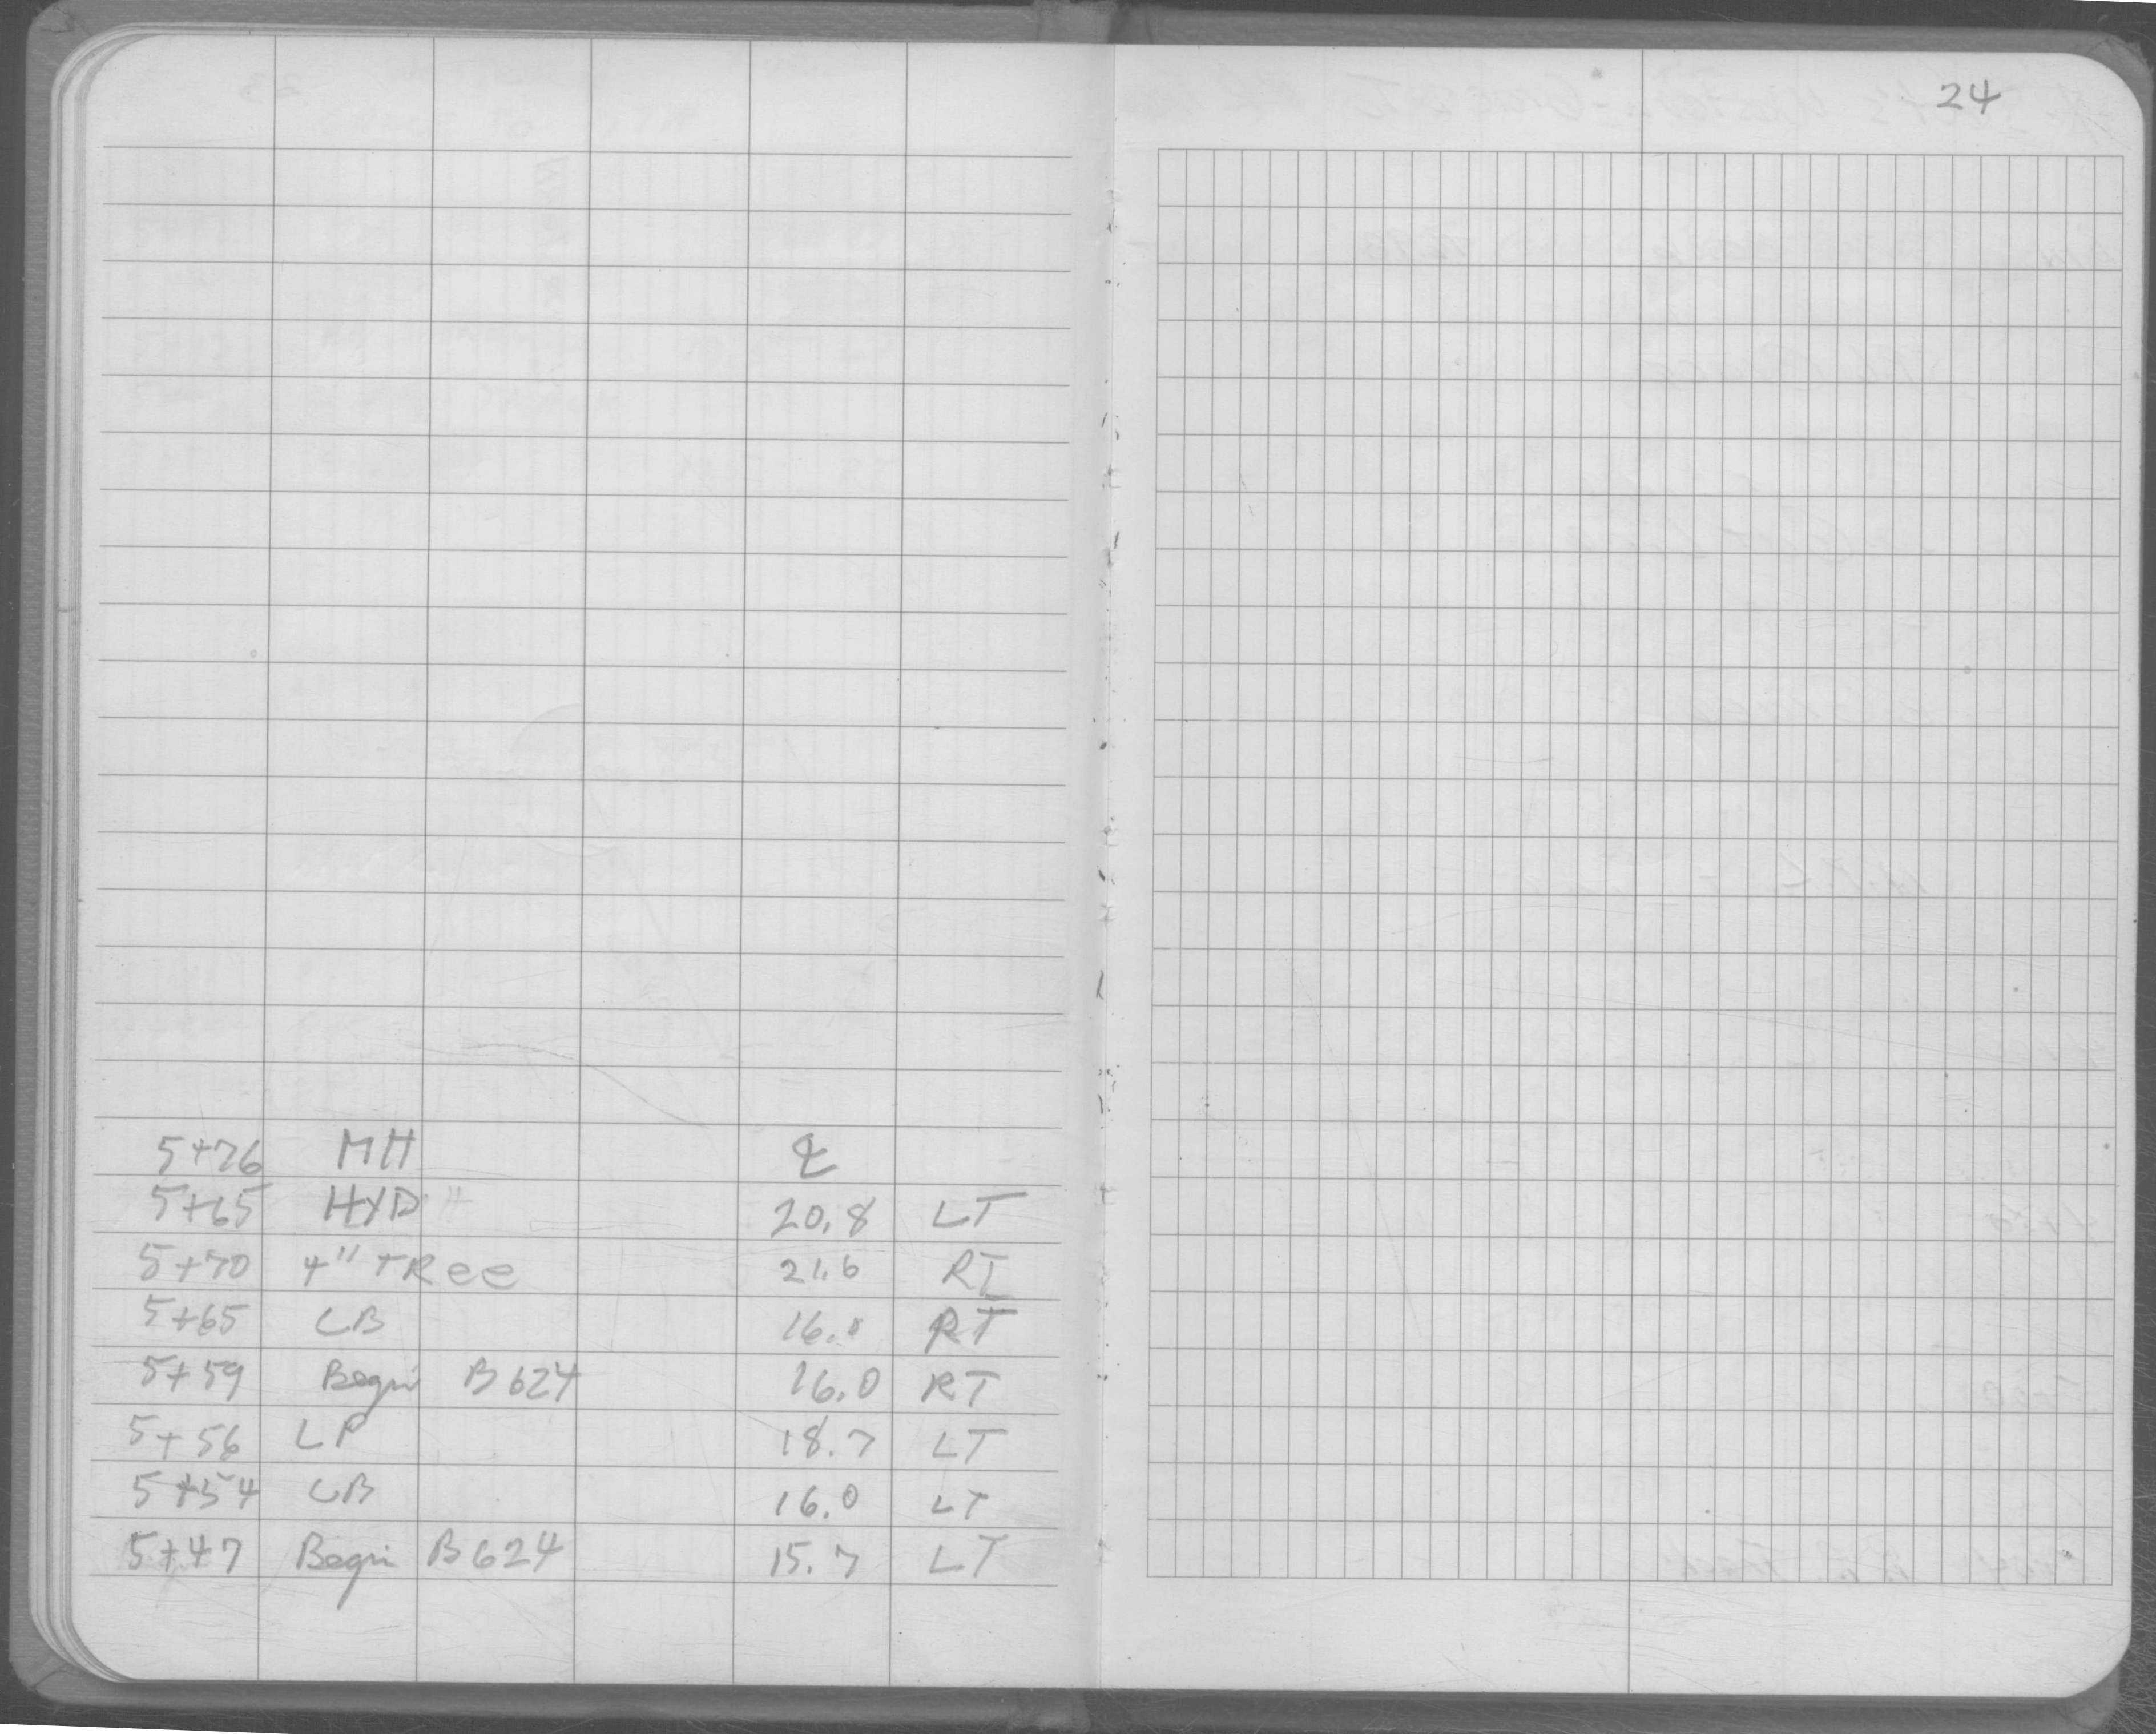 24
5+76 MH ℄
5+65 HYD 20.8 LT
5+70 4" TRee 21.6 RT
5+65 CB 16.0 RT
5+59 Begin B624 16.0 RT
5+56 LP 18.7 LT
5+54 CB 16.0 LT
5+47 Begin B624 15.7 LT